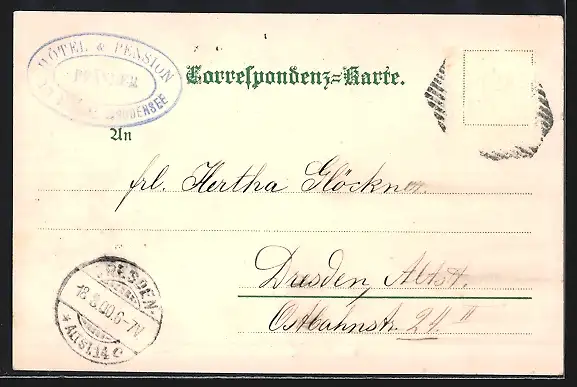 HÔTEL & PENSION
BODENSEE
Correspondenz-Karte.
An
frl. Hertha Glöckner.
Dresden, Altst.
Ostbahnstr. 24. II
DRESDEN
18.8.00.6-7V.
* ALTST.14 c